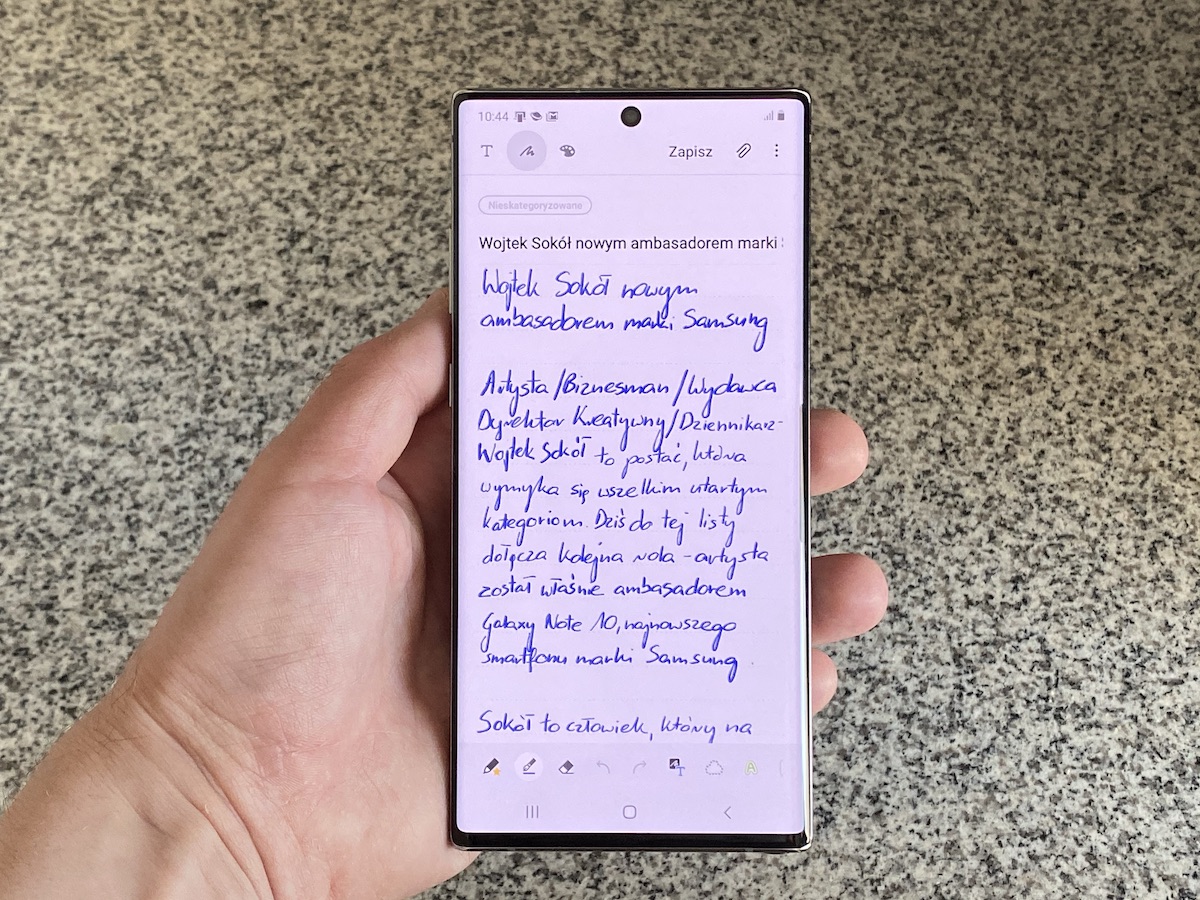 10:44
T Zapisz
Nieskategoryzowane
Wojtek Sokół nowym ambasadorem marki
Wojtek Sokół nowym
ambasadorem marki Samsung
Artysta/Biznesman/Wydawca
Dyrektor Kreatywny/Dziennikarz-
Wojtek Sokół to postać, która
wymyka się wszelkim utartym
kategoriom. Dziś do tej listy
dołącza kolejna rola - artysta
został właśnie ambasadorem
Galaxy Note 10, najnowszego
smartfonu marki Samsung
Sokół to człowiek, który na
T A